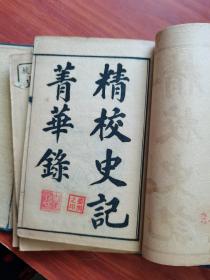 精校史記
菁華錄